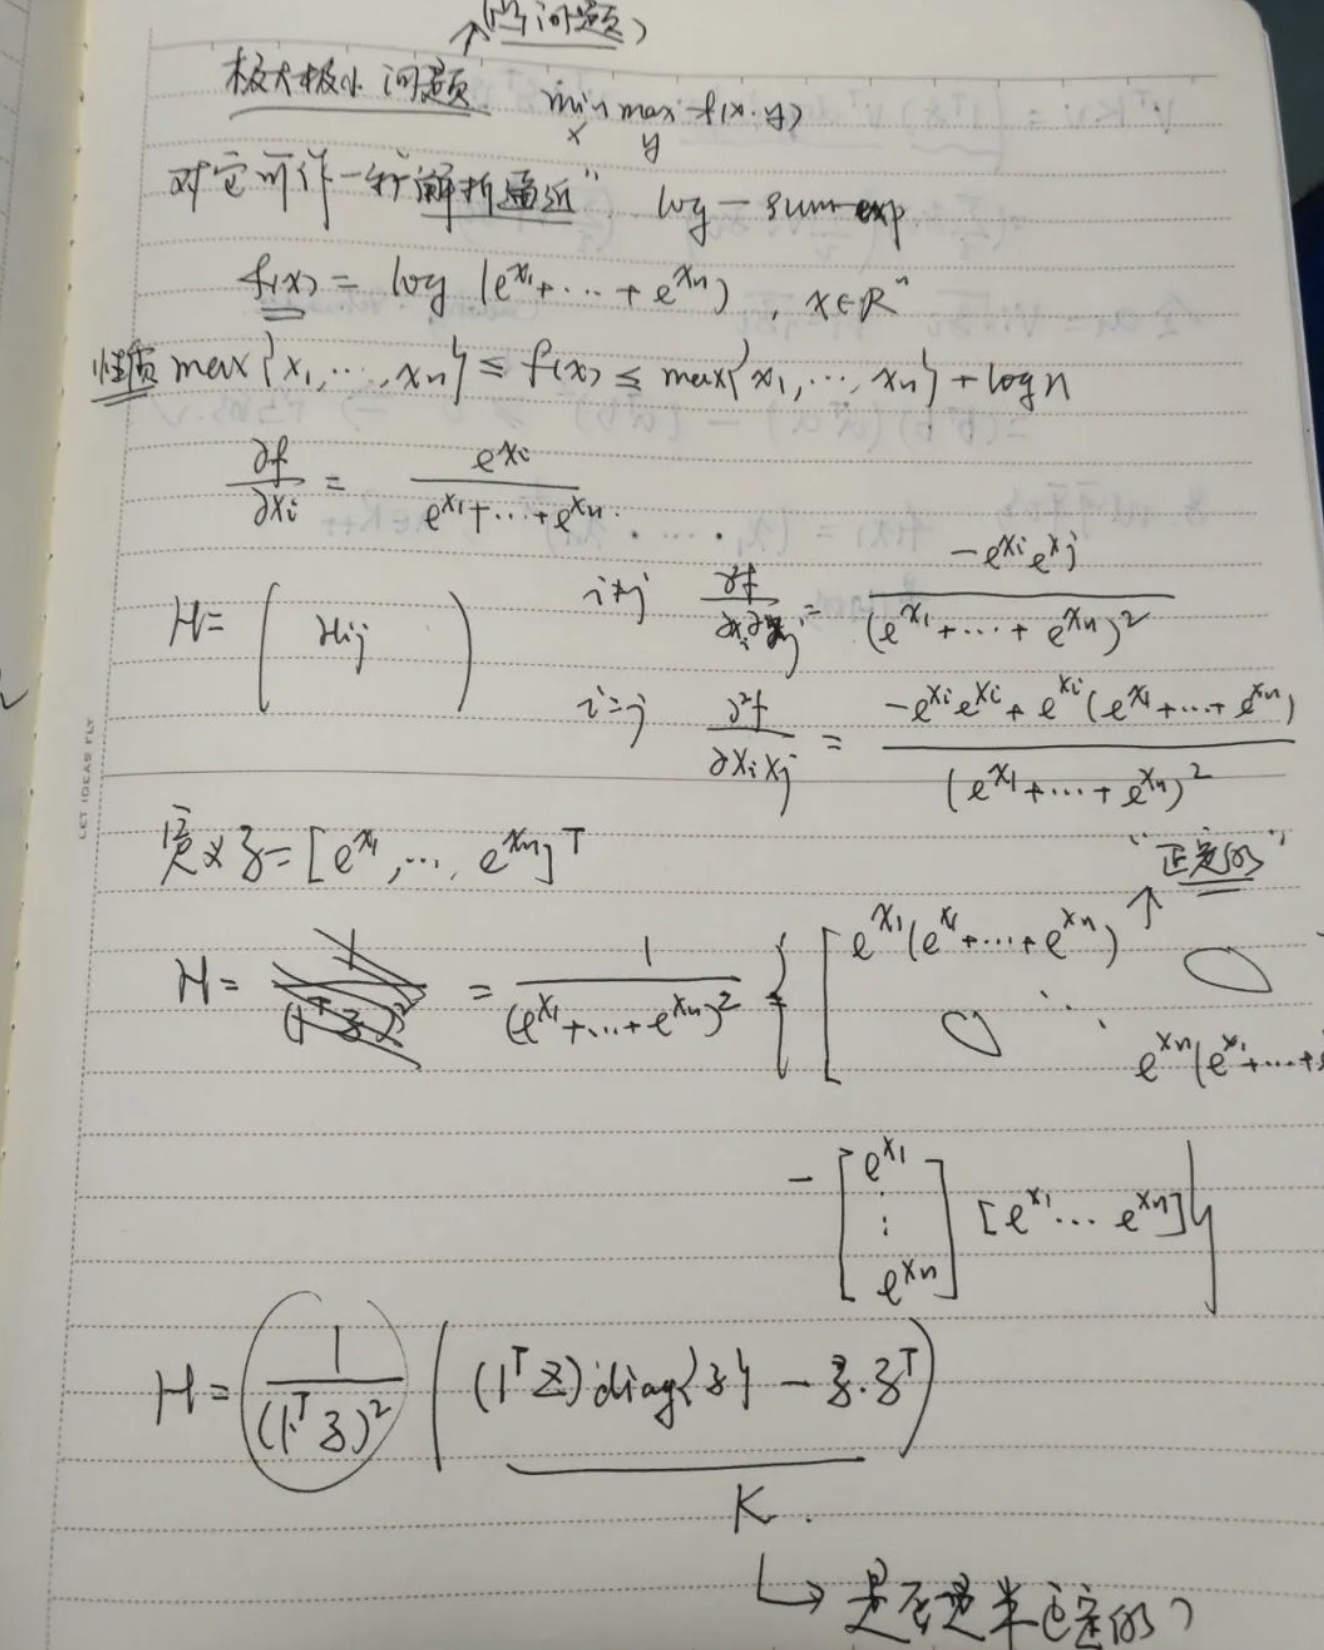 (凸问题)
极大极小问题 min max f(x.y)
x y
对它可作一种"解析逼近" log-sum-exp
f(x) = log (e^{x_1}+...+e^{x_n}), x∈R^n
性质 max{x_1,...,x_n} ≤ f(x) ≤ max{x_1,...,x_n}+log n
∂f/∂x_i = e^{x_i}/(e^{x_1}+...+e^{x_n}).
H= ( H_{ij} ) i≠j ∂²f/∂x_i∂x_j = -e^{x_i}e^{x_j}/(e^{x_1}+...+e^{x_n})^2
i=j ∂²f/∂x_i x_j = (-e^{x_i}e^{x_i}+e^{x_i}(e^{x_1}+...+e^{x_n}))/(e^{x_1}+...+e^{x_n})^2
LET IDEAS FLY
定义z=[e^{x_1},..., e^{x_n}]^T
"正定的"
H= = 1/(e^{x_1}+...+e^{x_n})^2 { [ e^{x_1}(e^{x_1}+...+e^{x_n}) 0
0 ⋱ e^{x_n}(e^{x_1}+...+
- [e^{x_1} ⋮ e^{x_n}] [e^{x_1}... e^{x_n}] }
H= 1/(1^T z)^2 ( (1^T z)diag{z} - z.z^T )
K.
↳ 是否是半正定的?